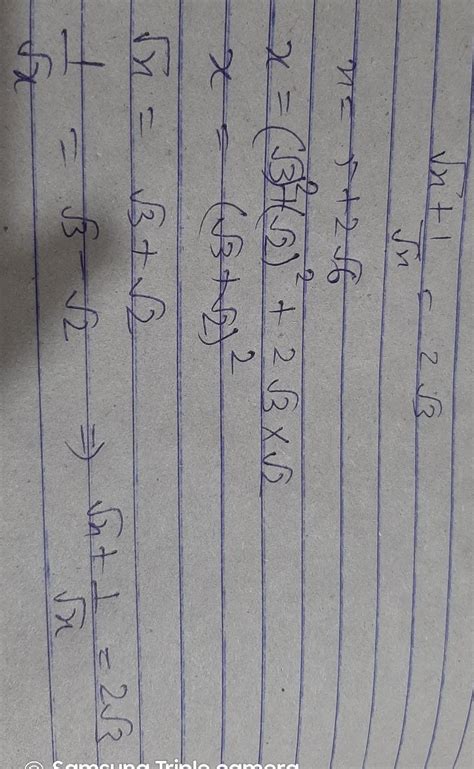 √x + 1/√x = 2√3
x = 5 + 2√6
x = (√3)² + (√2)² + 2√3 × √2
x = (√3 + √2)²
√x = √3 + √2
1/√x = √3 - √2 ⇒ √x + 1/√x = 2√3
Samsung Triple camera